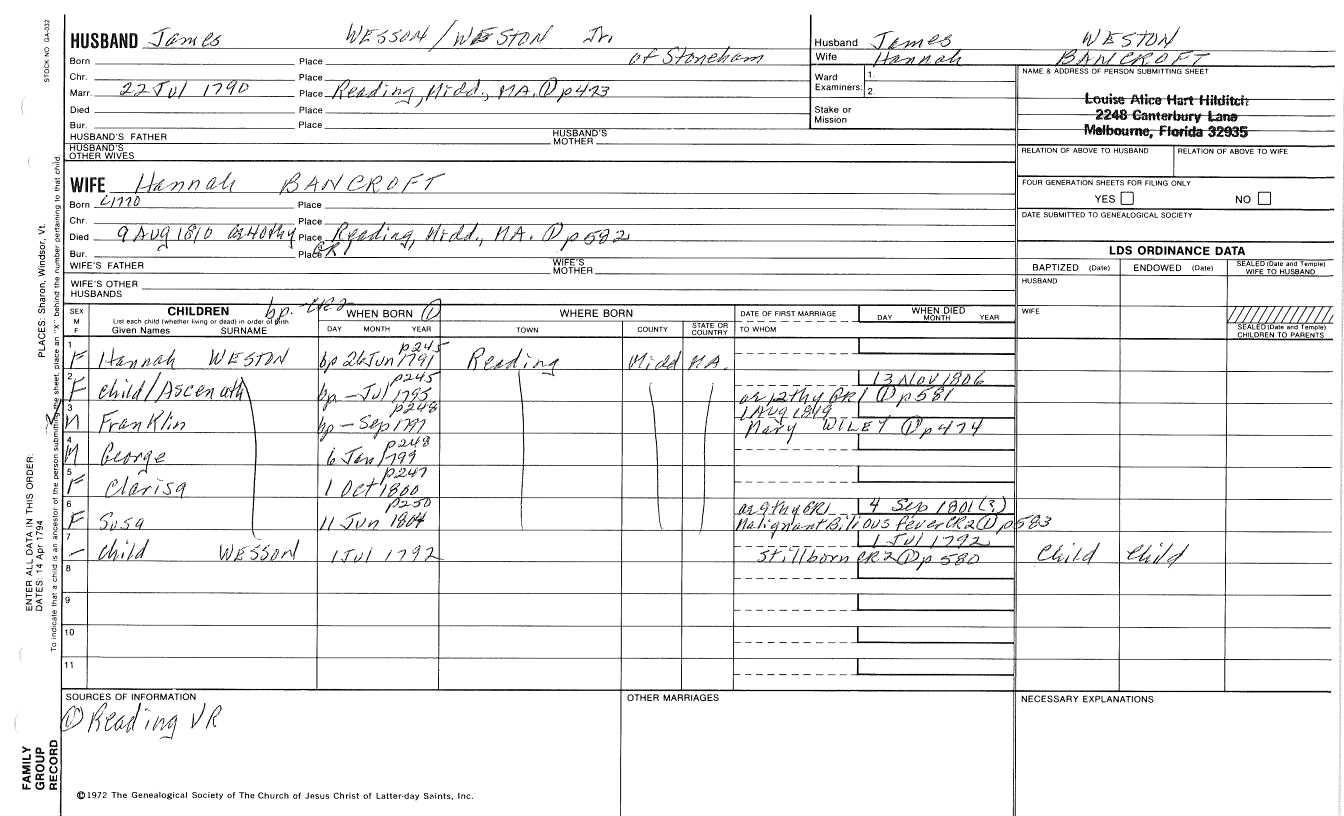 STOCK NO. GA-032
HUSBAND James WESSON/WESTON Jr. Husband James WESTON
Born Place of Stoneham Wife Hannah BANCROFT
Chr. Place Ward Examiners: 1. 2. NAME & ADDRESS OF PERSON SUBMITTING SHEET
Marr. 22 Jul 1790 Place Reading, Midd., MA. ① p423 Louise Alice Hart Hilditch
Died Place Stake or Mission 2248 Canterbury Lane
Bur. Place Melbourne, Florida 32935
HUSBAND'S FATHER HUSBAND'S MOTHER
HUSBAND'S OTHER WIVES RELATION OF ABOVE TO HUSBAND RELATION OF ABOVE TO WIFE
WIFE Hannah BANCROFT FOUR GENERATION SHEETS FOR FILING ONLY
Born c1770 Place YES NO
Chr. Place DATE SUBMITTED TO GENEALOGICAL SOCIETY
Died 9 Aug 1810 ae 40thy Place Reading, Midd., MA. ① p582
Bur. Place GR1 LDS ORDINANCE DATA
WIFE'S FATHER WIFE'S MOTHER BAPTIZED (Date) ENDOWED (Date) SEALED (Date and Temple) WIFE TO HUSBAND
WIFE'S OTHER HUSBANDS HUSBAND
SEX M F CHILDREN bp. - CR2 WHEN BORN ① WHERE BORN DATE OF FIRST MARRIAGE WHEN DIED WIFE
List each child (whether living or dead) in order of birth
Given Names SURNAME DAY MONTH YEAR TOWN COUNTY STATE OR COUNTRY TO WHOM DAY MONTH YEAR SEALED (Date and Temple) CHILDREN TO PARENTS
1 p245
F Hannah WESTON bp 26 Jun 1791 Reading Midd MA.
2 p245 13 Nov 1806
F child/Ascenath bp - Jul 1795 ae 12thy GR1 ① p581
3 p248 1 Aug 1849
M Franklin bp - Sep 1797 Mary WILEY ① p474
4 p248
M George 6 Jan 1799
5 p247
F Clarisa 1 Oct 1800
6 p250 ae 9thy GR1 4 Sep 1801(?)
F Susa 11 Jun 1804 Malignant Bilious fever CR2 ① p583
7 1 Jul 1792
- child WESSON 1 Jul 1792 Stillborn CR2 ① p580 Child Child
8
9
10
11
SOURCES OF INFORMATION OTHER MARRIAGES NECESSARY EXPLANATIONS
① Reading VR
©1972 The Genealogical Society of The Church of Jesus Christ of Latter-day Saints, Inc.
FAMILY GROUP RECORD
ENTER ALL DATA IN THIS ORDER:
DATES: 14 Apr 1794
PLACES: Sharon, Windsor, Vt.
To indicate that a child is an ancestor of the person submitting the sheet, place an "X" behind the number pertaining to that child.